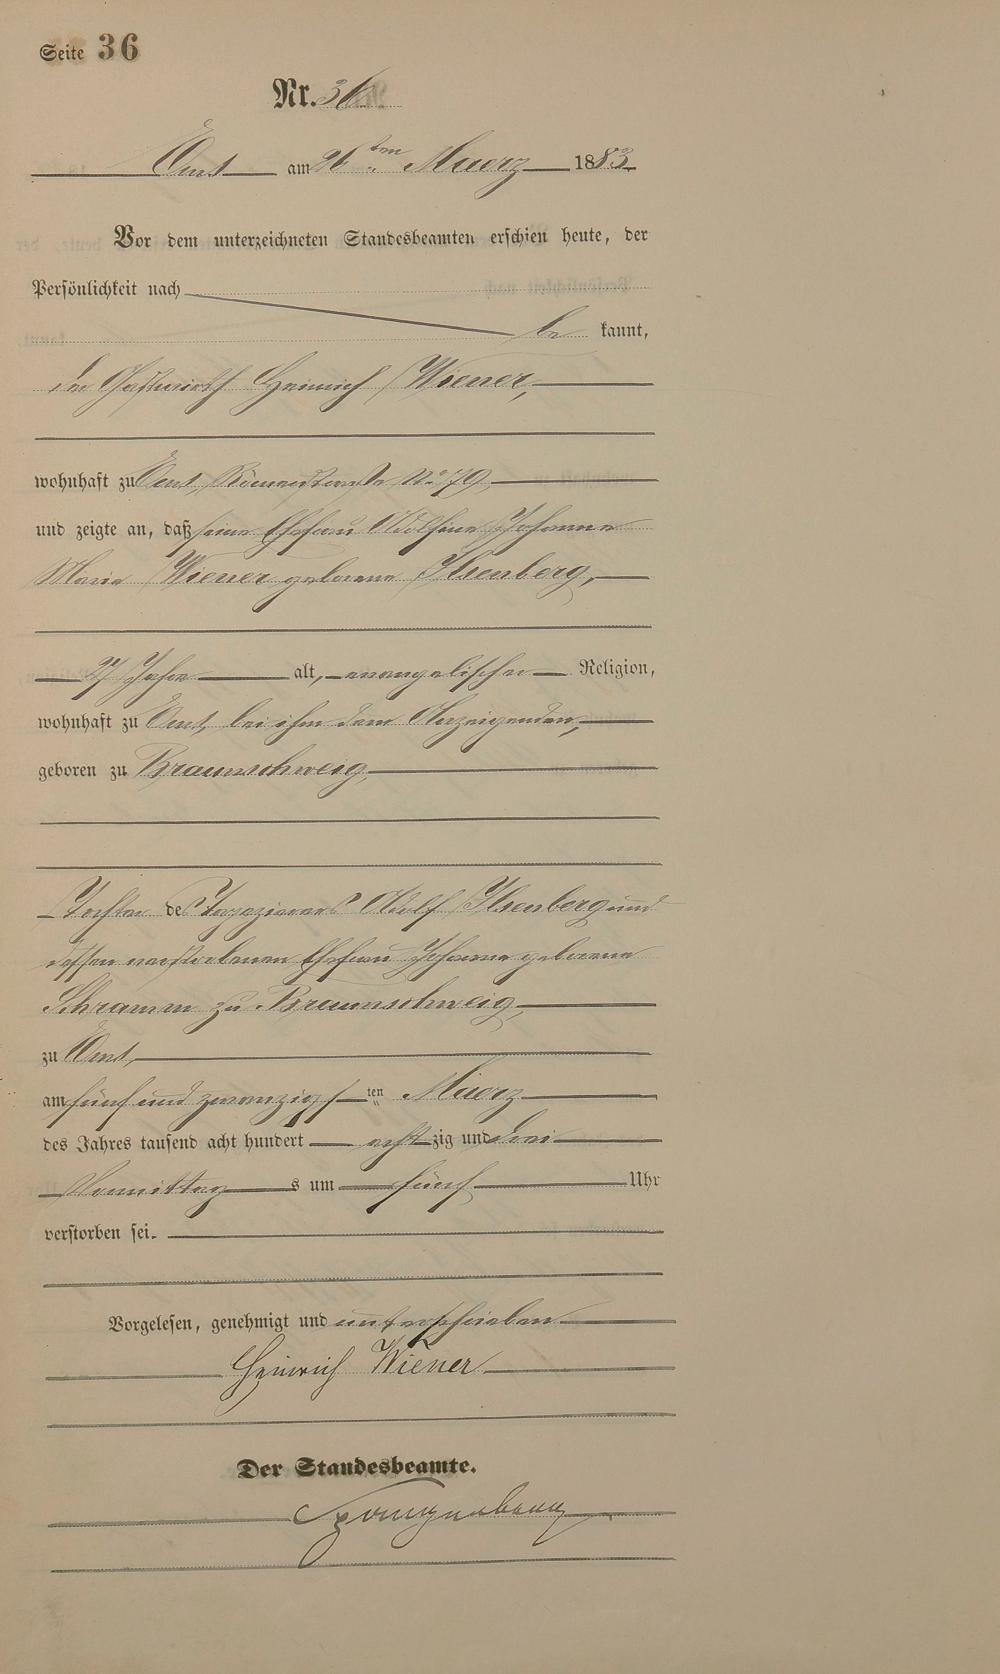 Seite 36
Nr. 36
Ems am 26ten Maerz 1883
Vor dem unterzeichneten Standesbeamten erschien heute, der
Persönlichkeit nach
be kannt,
der Gastwirth Heinrich Wiener,
wohnhaft zu Ems, Römerstraße No 79
und zeigte an, daß seine Ehefrau Adolfine Johanne
Marie Wiener geborene Ilsenberg,
27 Jahre alt, evangelischer Religion,
wohnhaft zu Ems, bei ihm dem Anzeigenden,
geboren zu Braunschweig,
Tochter des Tapezierers Adolf Ilsenberg und
dessen verstorbenen Ehefrau Johanne geborene
Schramm zu Braunschweig,
zu Ems,
am fünf und zwanzigsten Maerz
des Jahres tausend acht hundert achtzig und drei
Vormittags um fünf Uhr
verstorben sei.
Vorgelesen, genehmigt und unterschrieben
Heinrich Wiener
Der Standesbeamte.